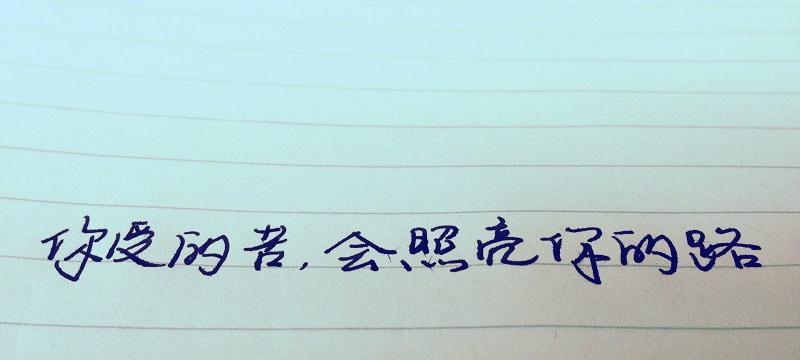 你受的苦，会照亮你的路